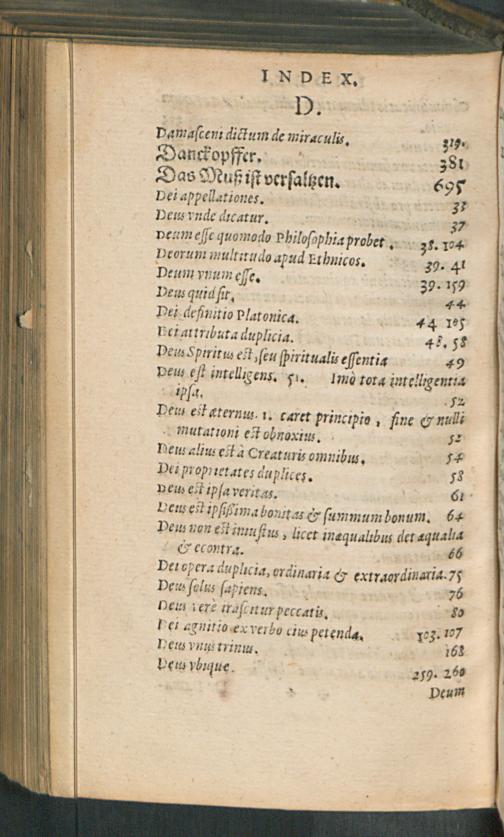 INDEX.
D.
Damaſceni dictum de miraculis. 319.
Danckopffer. 381
Das Muß iſt verſaltzen. 695
Dei appellationes. 33
Deus vnde dicatur. 37
Deum eſſe quomodo Philoſophia probet. 38. 104
Deorum multitudo apud Ethnicos. 39. 41
Deum vnum eſſe. 39. 159
Deus quid ſit. 44
Dei definitio Platonica. 44 105
Dei attributa duplicia. 48. 58
Deus Spiritus eſt, ſeu ſpiritualis eſſentia 49
Deus eſt intelligens. 51. Imò tota intelligentia
ipſa. 52
Deus eſt æternus. 1. caret principio, fine & nulli
mutationi eſt obnoxius. 52
Deus alius eſt à Creaturis omnibus. 54
Dei proprietates duplices. 58
Deus eſt ipſa veritas. 61
Deus eſt ipſiſſima bonitas & ſummum bonum. 64
Deus non eſt iniuſtus, licet inæqualibus det æqualia
& econtra. 66
Dei opera duplicia, ordinaria & extraordinaria. 75
Deus ſolus ſapiens. 76
Deus verè iraſcitur peccatis. 80
Dei agnitio ex verbo eius petenda. 103. 107
Deus vnus trinus. 168
Deus vbique. 259. 260
Deum